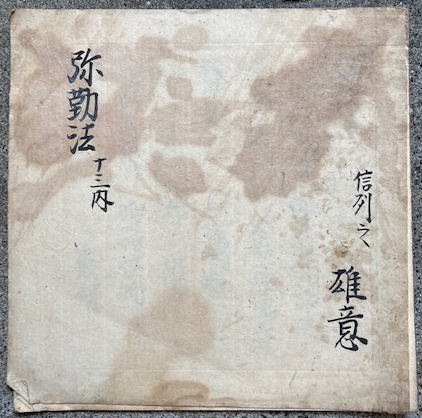 弥勒法
十三内
信列之
雄意